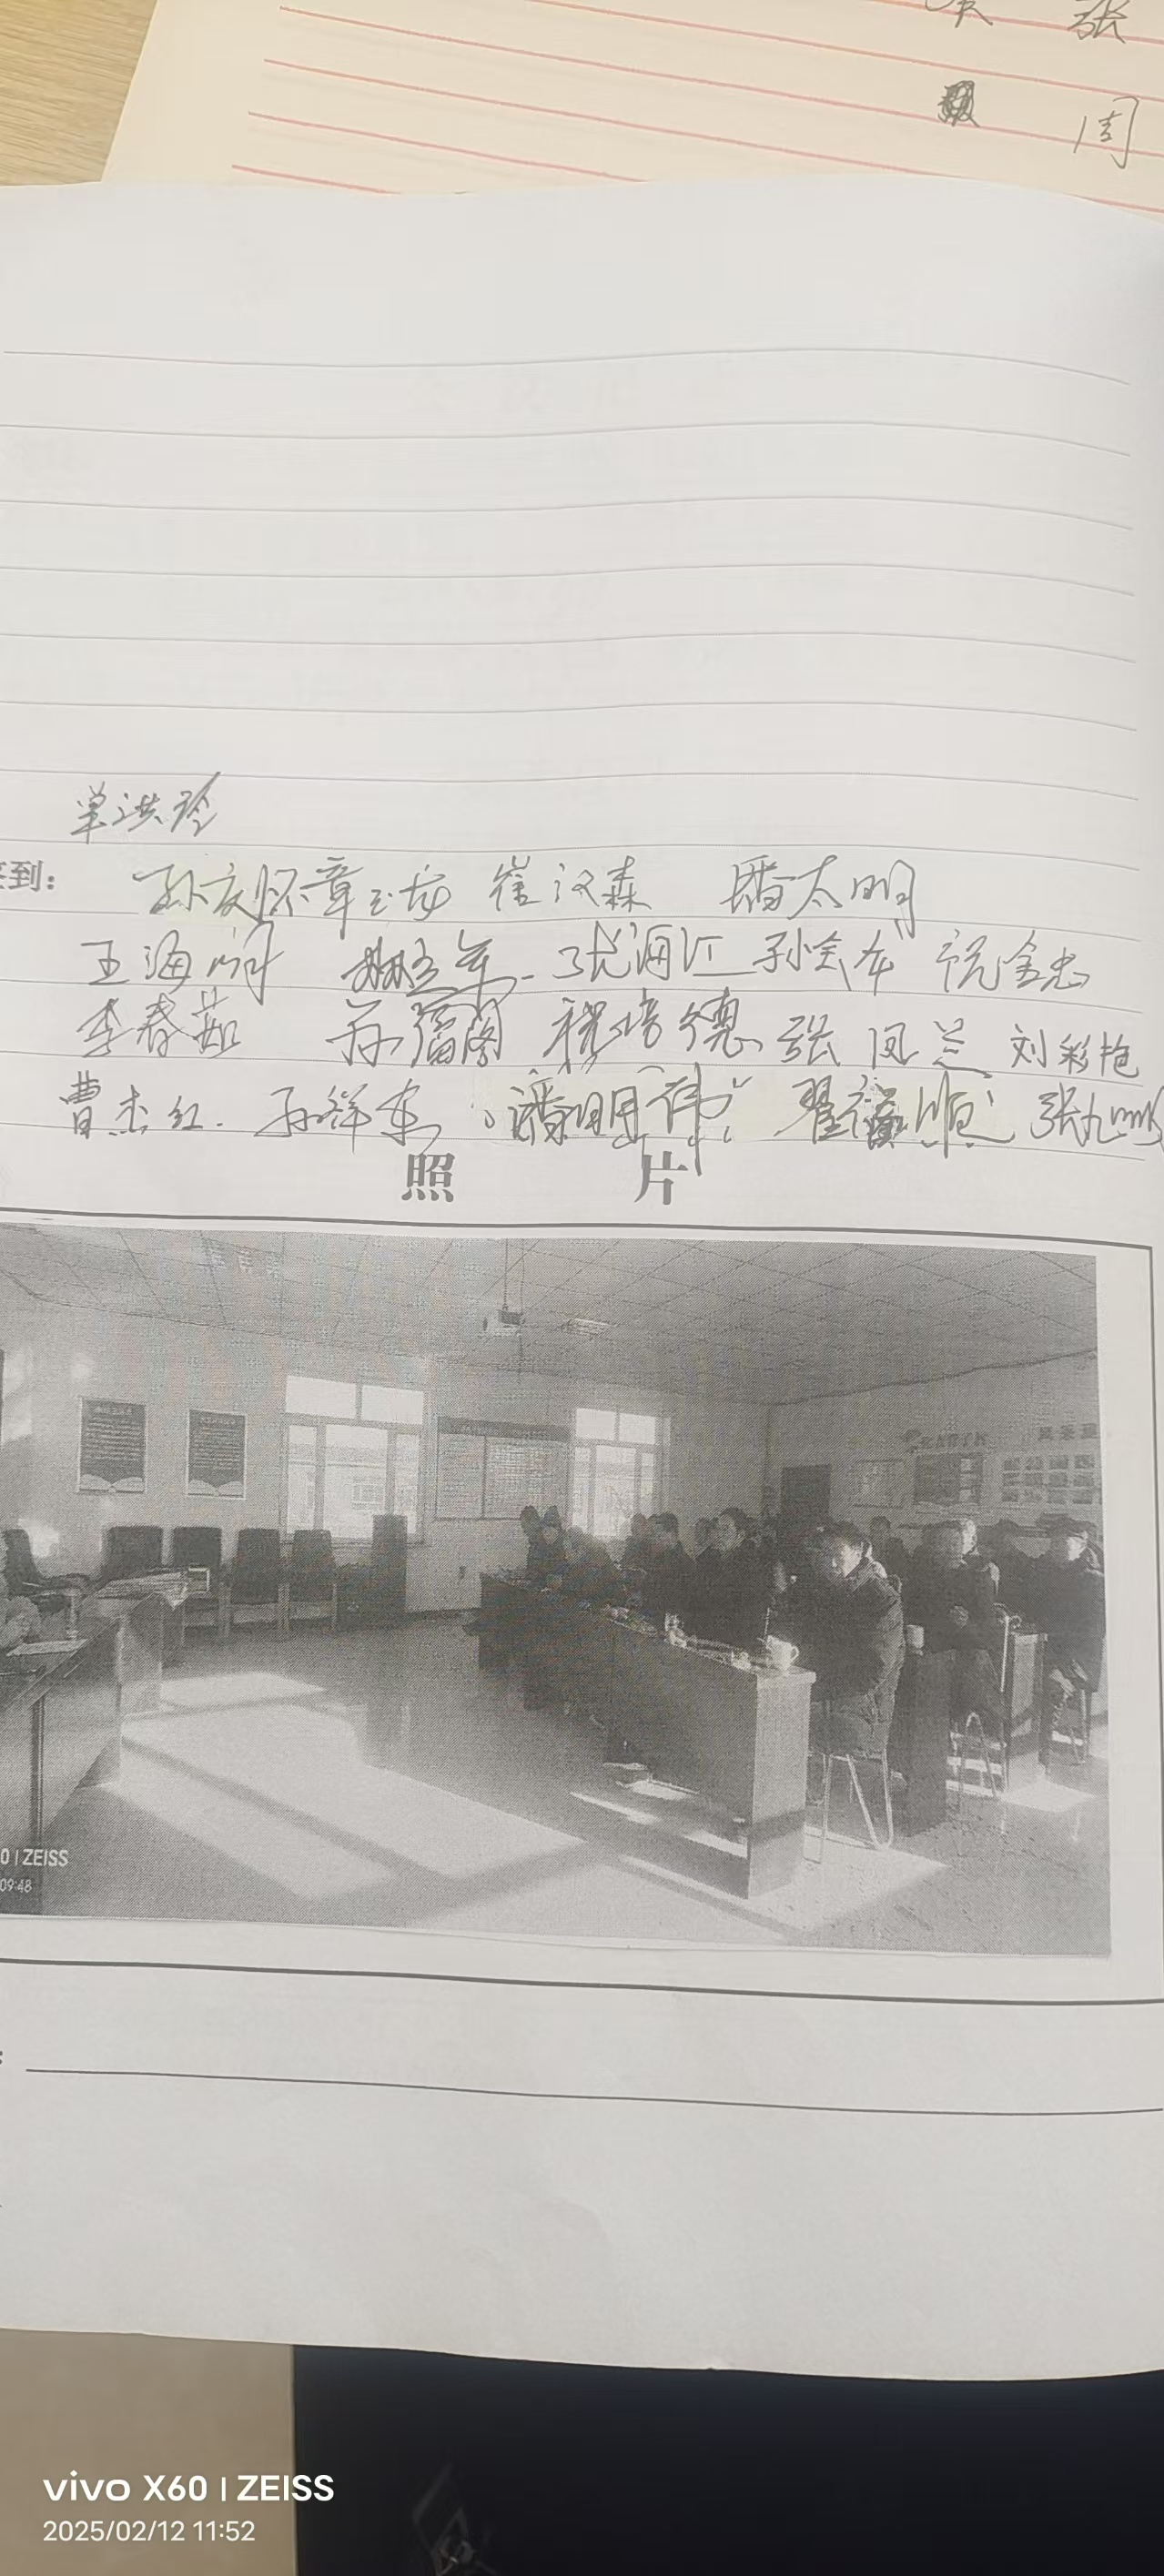 张
周
单洪玲
签到：孙庆怀 章玉龙 崔汉森 潘太明
王海明 张海江 孙会本 祝金忠
李春茹 孙福阁 张凤兰 刘彩艳
曹杰红. 孙祥东 潘明伟 翟福顺 张九
照 片
0 | ZEISS
09:48
vivo X60 | ZEISS
2025/02/12 11:52